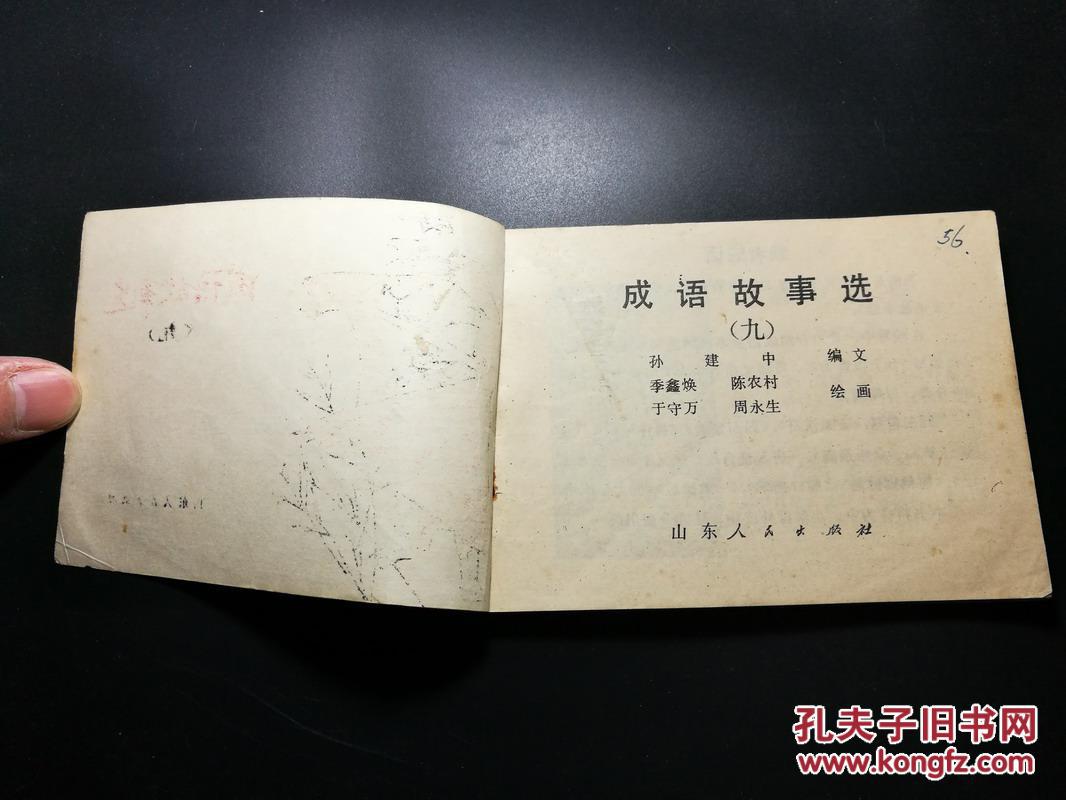 56.
成语故事选
（九）
孙建中 编文
季鑫焕 陈农村
于守万 周永生 绘画
山东人民出版社
孔夫子旧书网
www.kongfz.com